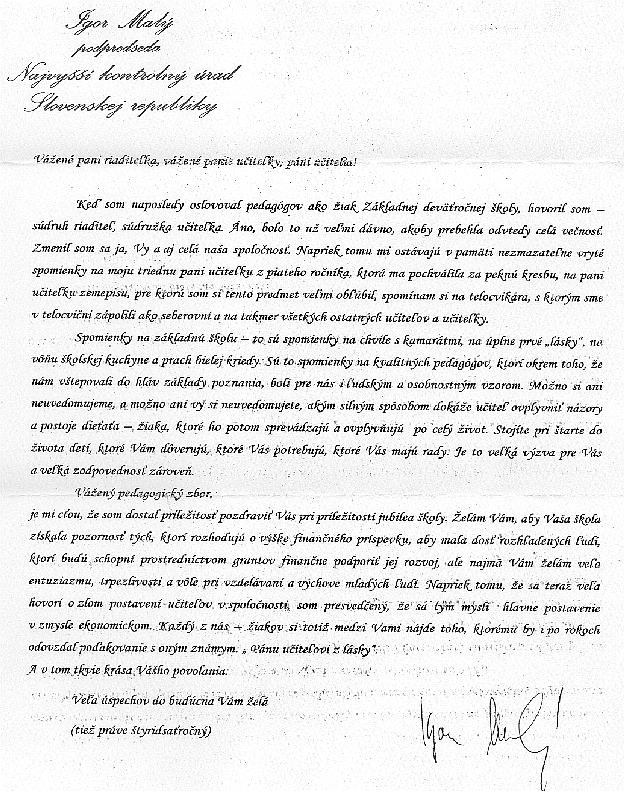 Igor Malý
podpredseda
Najvyšší kontrolný úrad
Slovenskej republiky
Vážená pani riaditeľka, vážené panie učiteľky, páni učitelia!
Keď som naposledy oslovoval pedagógov ako žiak Základnej deväťročnej školy, hovoril som –
súdruh riaditeľ, súdružka učiteľka. Áno, bolo to už veľmi dávno, akoby prebehla odvtedy celá večnosť.
Zmenil som sa ja, Vy a aj celá naša spoločnosť. Napriek tomu mi ostávajú v pamäti nezmazateľne vryté
spomienky na moju triednu pani učiteľku z piateho ročníka, ktorá ma pochválila za peknú kresbu, na pani
učiteľku zemepisu, pre ktorú som si tento predmet veľmi obľúbil, spomínam si na telocvikára, s ktorým sme
v telocvični zápolili ako seberovní a na takmer všetkých ostatných učiteľov a učiteľky.
Spomienky na základnú školu – to sú spomienky na chvíle s kamarátmi, na úplne prvé „lásky", na
vôňu školskej kuchyne a prach bielej kriedy. Sú to spomienky na kvalitných pedagógov, ktorí okrem toho, že
nám vštepovali do hláv základy poznania, boli pre nás i ľudským a osobnostným vzorom. Možno si ani
neuvedomujeme, a možno ani vy si neuvedomujete, akým silným spôsobom dokáže učiteľ ovplyvniť názory
a postoje dieťaťa – žiaka, ktoré ho potom sprevádzajú a ovplyvňujú po celý život. Stojíte pri štarte do
života detí, ktoré Vám dôverujú, ktoré Vás potrebujú, ktoré Vás majú rady. Je to veľká výzva pre Vás
a veľká zodpovednosť zároveň.
Vážený pedagogický zbor,
je mi cťou, že som dostal príležitosť pozdraviť Vás pri príležitosti jubilea školy. Želám Vám, aby Vaša škola
získala pozornosť tých, ktorí rozhodujú o výške finančného príspevku, aby mala dosť rozhľadených ľudí,
ktorí budú schopní prostredníctvom grantov finančne podporiť jej rozvoj, ale najmä Vám želám veľa
entuziazmu, trpezlivosti a vôle pri vzdelávaní a výchove mladých ľudí. Napriek tomu, že sa teraz veľa
hovorí o zlom postavení učiteľov v spoločnosti, som presvedčený, že sa tým myslí hlavne postavenie
v zmysle ekonomickom. Každý z nás – žiakov si totiž medzi Vami nájde toho, ktorému by i po rokoch
odovzdal poďakovanie s oným známym „Pánu učiteľovi z lásky".
A v tom tkvie krása Vášho povolania.
Veľa úspechov do budúcna Vám želá
(tiež práve štyridsaťročný)
Igor Malý